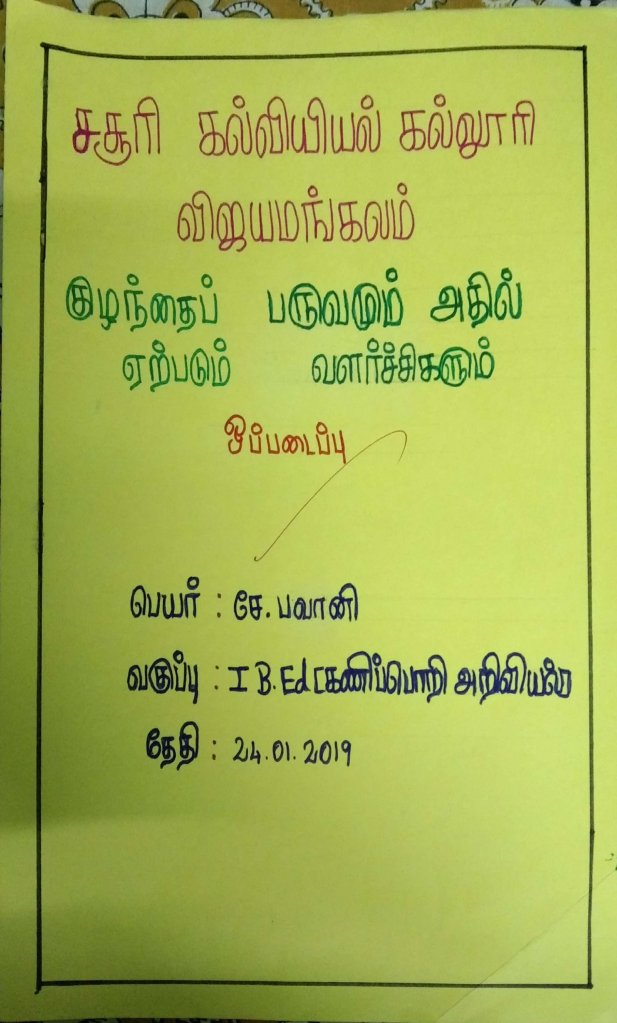 சசூரி கல்வியியல் கல்லூரி
விஜயமங்கலம்
குழந்தைப் பருவமும் அதில்
ஏற்படும் வளர்ச்சிகளும்
ஒப்படைப்பு
பெயர் : சே. பவானி
வகுப்பு : I B.Ed [கணிப்பொறி அறிவியல்]
தேதி : 24.01.2019